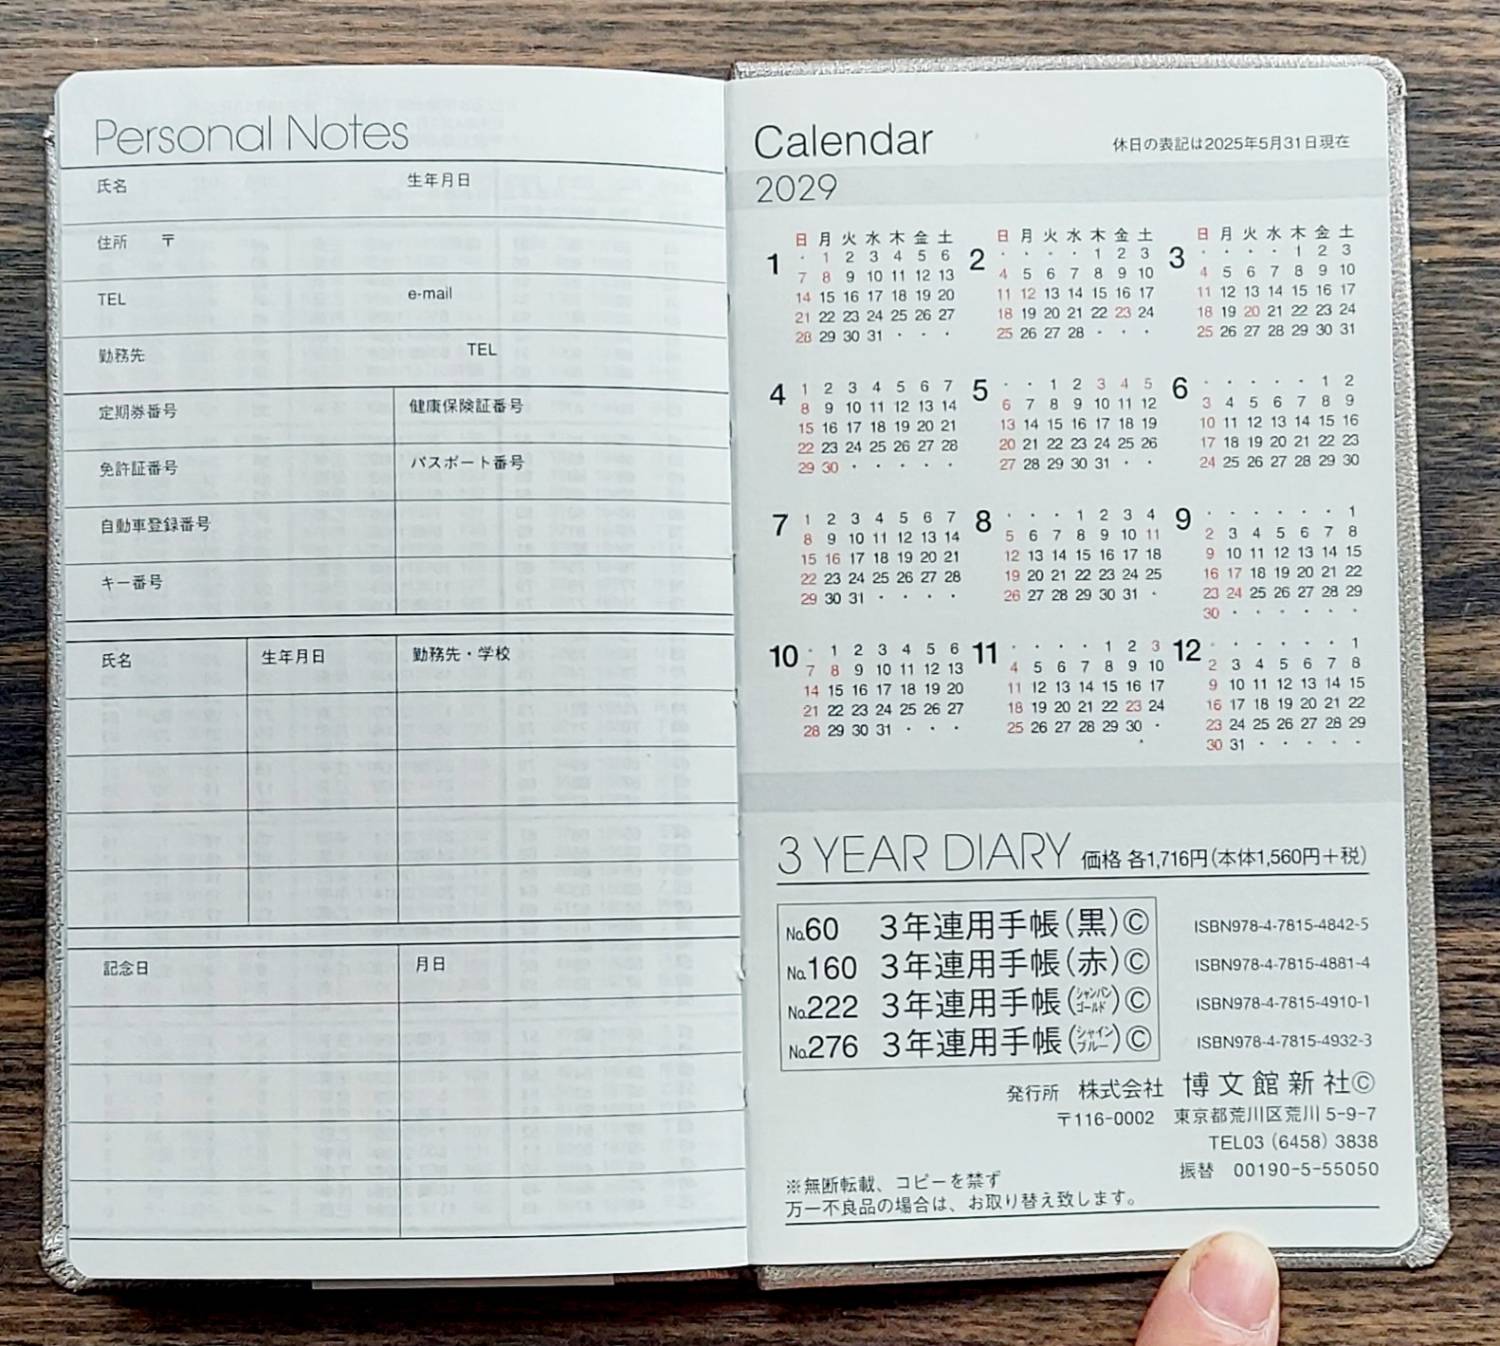 Personal Notes
氏名 生年月日
住所 〒
TEL e-mail
勤務先 TEL
定期券番号 健康保険証番号
免許証番号 パスポート番号
自動車登録番号
キー番号
氏名 生年月日 勤務先・学校
記念日 月日
Calendar 休日の表記は2025年5月31日現在
2029
1 日 月 火 水 木 金 土
・ 1 2 3 4 5 6
7 8 9 10 11 12 13
14 15 16 17 18 19 20
21 22 23 24 25 26 27
28 29 30 31 ・ ・ ・
2 日 月 火 水 木 金 土
・ ・ ・ ・ 1 2 3
4 5 6 7 8 9 10
11 12 13 14 15 16 17
18 19 20 21 22 23 24
25 26 27 28 ・ ・ ・
3 日 月 火 水 木 金 土
・ ・ ・ ・ 1 2 3
4 5 6 7 8 9 10
11 12 13 14 15 16 17
18 19 20 21 22 23 24
25 26 27 28 29 30 31
4 1 2 3 4 5 6 7
8 9 10 11 12 13 14
15 16 17 18 19 20 21
22 23 24 25 26 27 28
29 30 ・ ・ ・ ・ ・
5 ・ ・ 1 2 3 4 5
6 7 8 9 10 11 12
13 14 15 16 17 18 19
20 21 22 23 24 25 26
27 28 29 30 31 ・ ・
6 ・ ・ ・ ・ ・ 1 2
3 4 5 6 7 8 9
10 11 12 13 14 15 16
17 18 19 20 21 22 23
24 25 26 27 28 29 30
7 1 2 3 4 5 6 7
8 9 10 11 12 13 14
15 16 17 18 19 20 21
22 23 24 25 26 27 28
29 30 31 ・ ・ ・ ・
8 ・ ・ ・ 1 2 3 4
5 6 7 8 9 10 11
12 13 14 15 16 17 18
19 20 21 22 23 24 25
26 27 28 29 30 31 ・
9 ・ ・ ・ ・ ・ ・ 1
2 3 4 5 6 7 8
9 10 11 12 13 14 15
16 17 18 19 20 21 22
23 24 25 26 27 28 29
30 ・ ・ ・ ・ ・ ・
10 ・ 1 2 3 4 5 6
7 8 9 10 11 12 13
14 15 16 17 18 19 20
21 22 23 24 25 26 27
28 29 30 31 ・ ・ ・
11 ・ ・ ・ ・ 1 2 3
4 5 6 7 8 9 10
11 12 13 14 15 16 17
18 19 20 21 22 23 24
25 26 27 28 29 30 ・
12 ・ ・ ・ ・ ・ ・ 1
2 3 4 5 6 7 8
9 10 11 12 13 14 15
16 17 18 19 20 21 22
23 24 25 26 27 28 29
30 31 ・ ・ ・ ・ ・
3 YEAR DIARY 価格 各1,716円(本体1,560円+税)
No.60 3年連用手帳(黒)© ISBN978-4-7815-4842-5
No.160 3年連用手帳(赤)© ISBN978-4-7815-4881-4
No.222 3年連用手帳(シャンパンゴールド)© ISBN978-4-7815-4910-1
No.276 3年連用手帳(シャインブルー)© ISBN978-4-7815-4932-3
発行所 株式会社 博文館新社©
〒116-0002 東京都荒川区荒川 5-9-7
TEL03 (6458) 3838
振替 00190-5-55050
※無断転載、コピーを禁ず
万一不良品の場合は、お取り替え致します。